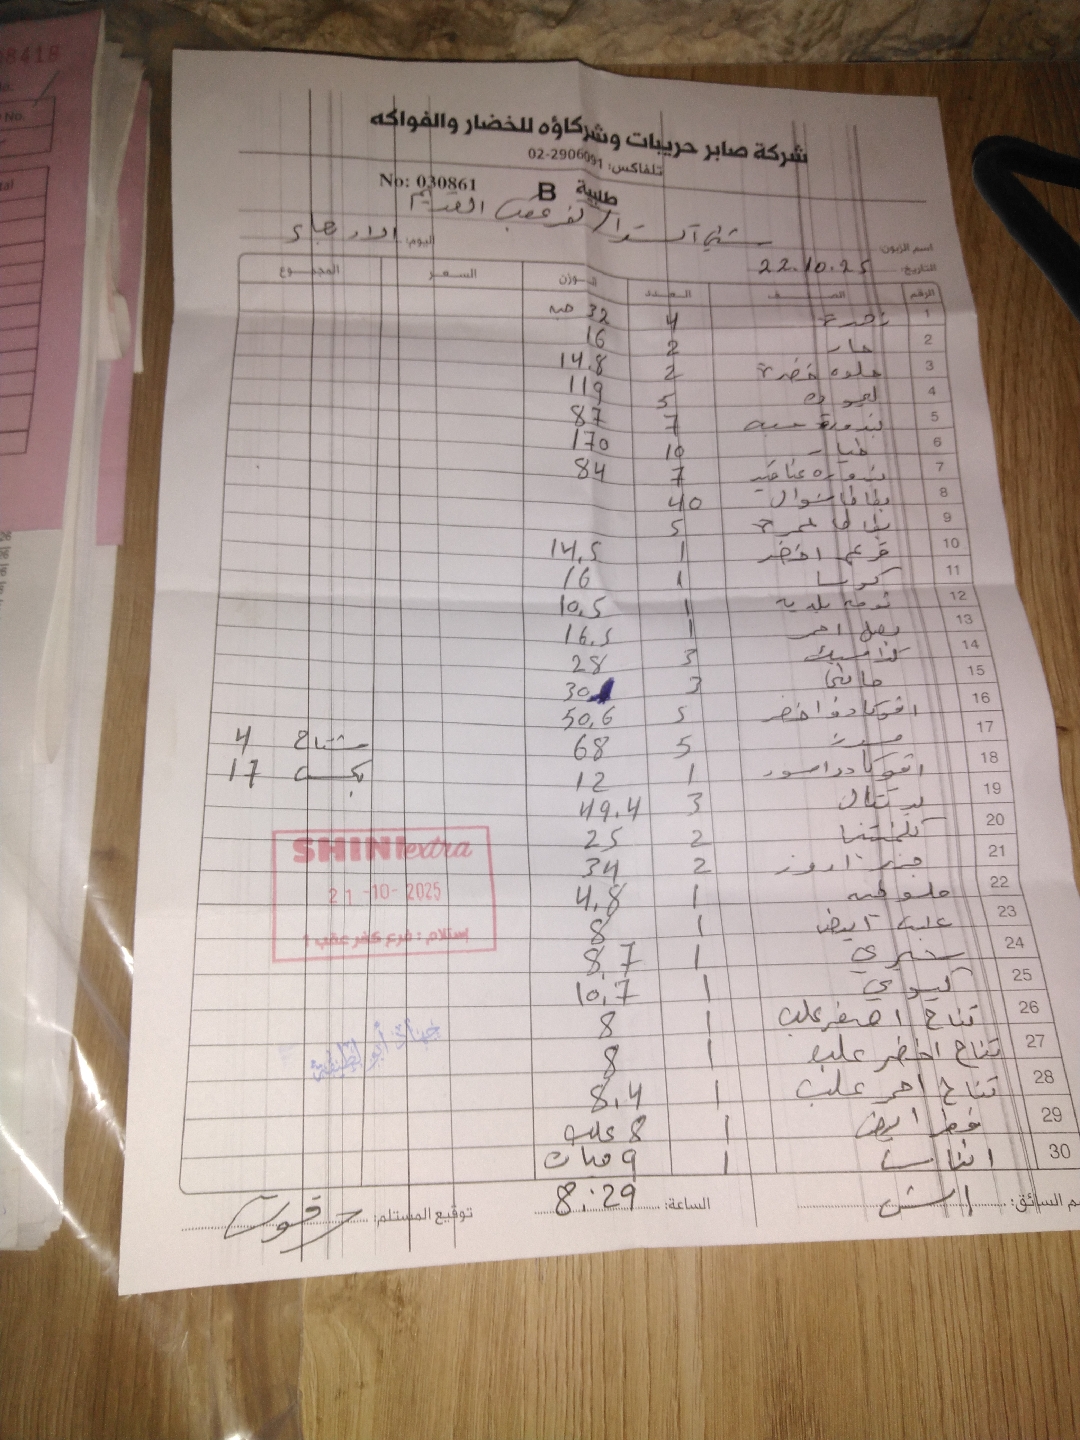 شركة صابر حريبات وشركاؤه للخضار والفواكه
تلفاكس: 02-2906091
No: 030861 B طلبية
اسم الزبون: شني اكسترا كفر عقب القديم
اليوم: الاربعاء
التاريخ: 22.10.25
الرقم الصنف العدد الوزن السعر المجموع
1 4 32 حبه
2 حار 2 16
3 حلوه خضرة 2 14.8
4 ليمون 5 119
5 بندورة حبه 7 87
6 خيار 10 170
7 بندوره عناقيد 7 84
8 بطاطا شوال 40
9 بطاطا 5
10 قرع اخضر 1 14.5
11 كوسا 1 16
12 ثومه بلديه 1 10.5
13 بصل احمر 1 16.5
14 3 28
15 3 30
16 افوكادو اخضر 5 50.6
17 موز 5 68 مشتاح 4
18 افوكادو اسود 1 12 بكسه 17
19 برتقال 3 49.4
20 كلمنتينا 2 25
21 جزر 2 34
22 ملوخيه 1 4.8
23 عنب ابيض 1 8
24 1 8.7
25 كيوي 1 10.7
26 تفاح اصفر علب 1 8
27 تفاح اخضر علب 1 8
28 تفاح احمر علب 1 8.4
29 فطر ابيض 1 8 علب
30 اناناس 1 9 حبات
SHINI extra
21-10-2025
إستلام : فرع كفر عقب 1
اسم السائق: الساعة: 8:29 توقيع المستلم:
8418
No.